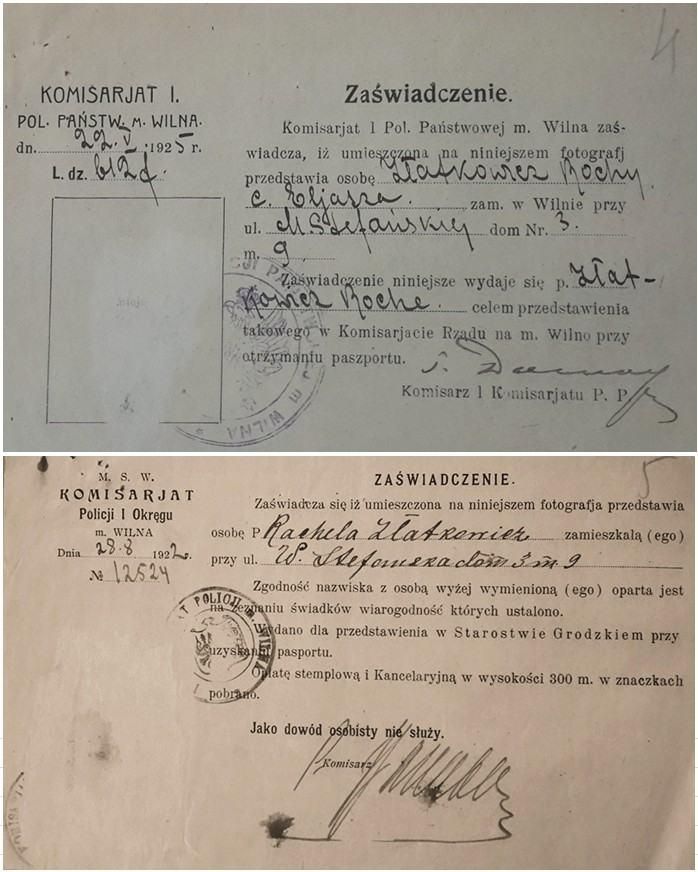 4
KOMISARJAT I.
POL. PAŃSTW. M. WILNA.
dn. 22.V 1925 r.
L. dz.
Zaświadczenie.
Komisarjat 1 Pol. Państwowej m. Wilna zaś-
wiadcza, iż umieszczona na niniejszem fotografj
przedstawia osobę Złatkowicz Rochy
c. Eljasza. zam. w Wilnie przy
ul. M Stefańskiej dom Nr. 3.
m. 9
Zaświadczenie niniejsze wydaje się p. Złat-
kowicz Roche. celem przedstawienia
takowego w Komisarjacie Rządu na m. Wilno przy
otrzymaniu paszportu.
Komisarz 1 Komisarjatu P. P.
WILNA
5
M. S. W.
KOMISARJAT
Policji I Okręgu
m. WILNA
Dnia 28-8 1922.
№ 12524
ZAŚWIADCZENIE.
Zaświadcza się iż umieszczona na niniejszem fotografja przedstawia
osobę P Rachela Złatkowicz zamieszkałą (ego)
przy ul. W. Stefanska dom 3 m 9
Zgodność nazwiska z osobą wyżej wymienioną (ego) oparta jest
na zeznaniu świadków wiarogodność których ustalono.
Wydano dla przedstawienia w Starostwie Grodzkiem przy
uzyskaniu pasportu.
Opłatę stemplową i Kancelaryjną w wysokości 300 m. w znaczkach
pobrano.
POLICJI
Jako dowód osobisty nie służy.
Komisarz